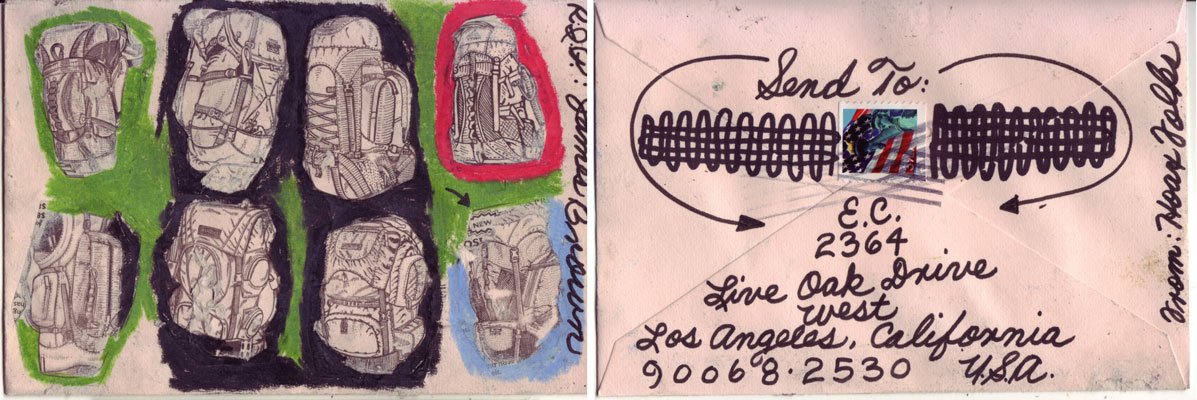 R.I.P.: James Brown
NEW
Send To:
E.C.
2364
Live Oak Drive
West
Los Angeles, California
90068.2530 U.S.A.
From: Hoax Folks